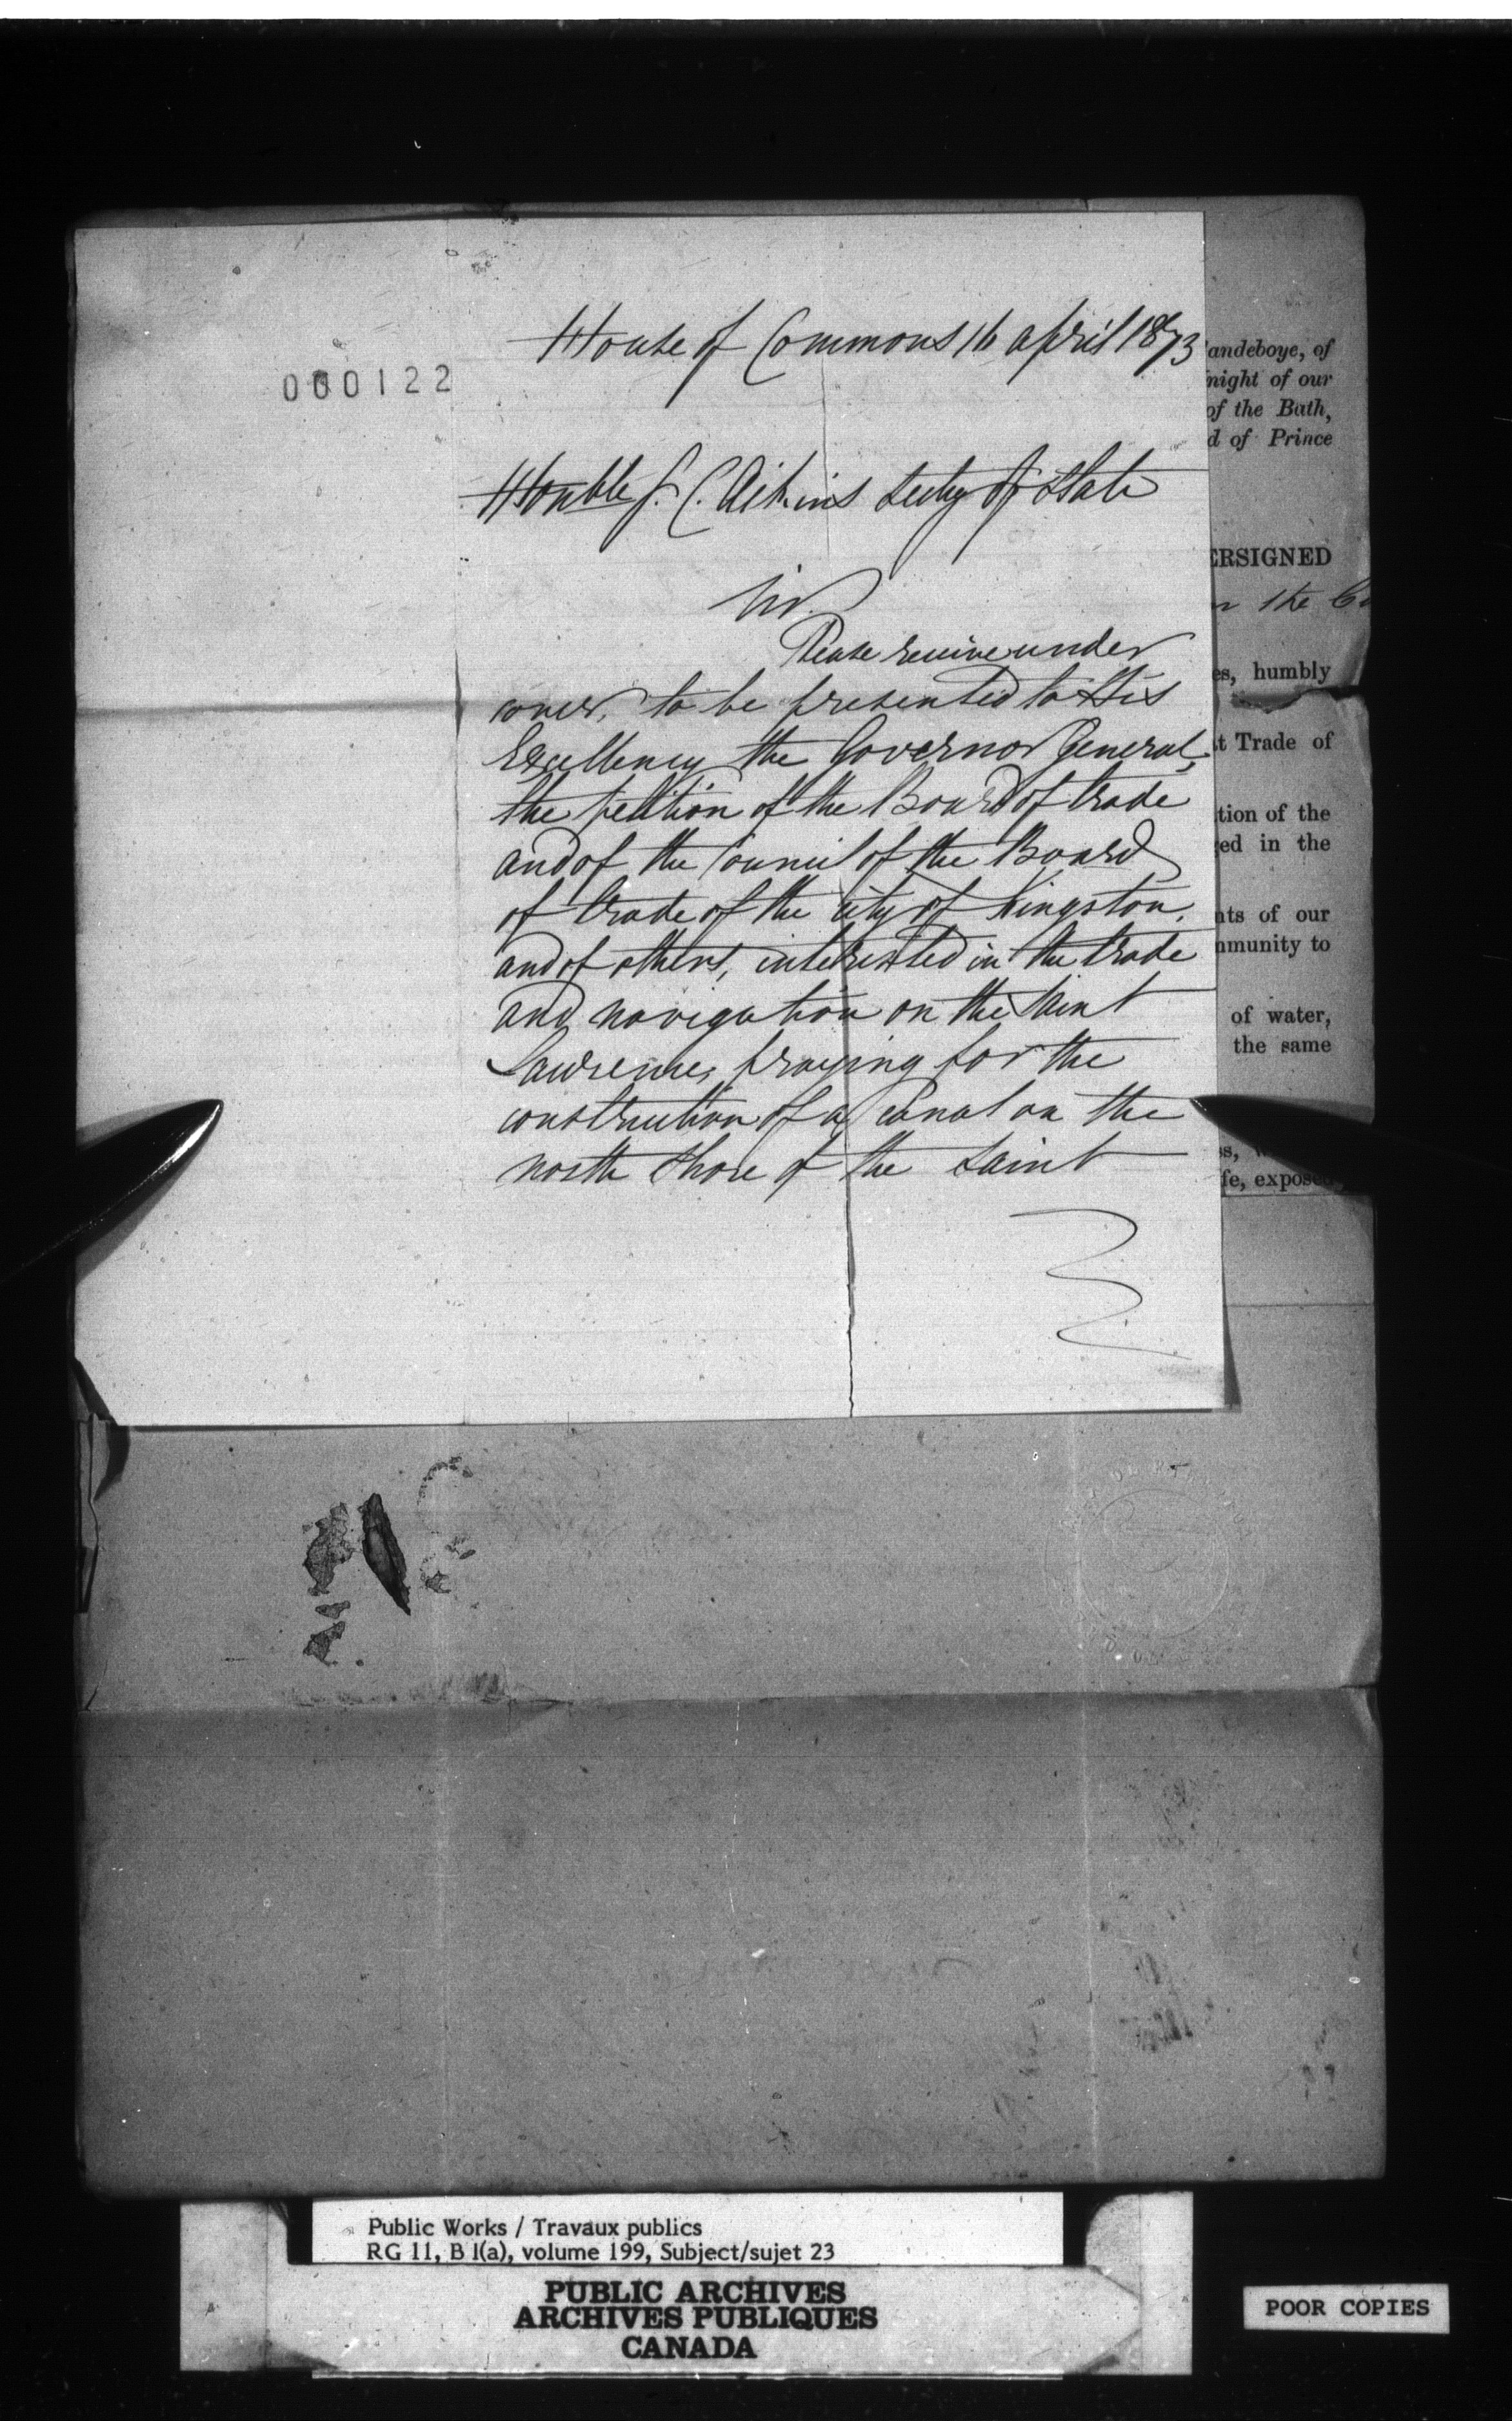 000122
House of Commons 16 april 1873
Honble J. C. Aikins Secty of State
Sir
Please receive under
cover, to be presented to His
Excellency the Governor General,
the petition of the Board of trade
and of the Council of the Board
of trade of the city of Kingston,
and of others, interested in the trade
and navigation on the Saint
Lawrence, praying for the
construction of a Canal on the
north shore of the Saint
andeboye, of
night of our
of the Bath,
d of Prince
ERSIGNED
the
es, humbly
t Trade of
tion of the
ed in the
nts of our
mmunity to
of water,
the same
fe, expose
Public Works / Travaux publics
RG 11, B 1(a), volume 199, Subject/sujet 23
PUBLIC ARCHIVES
ARCHIVES PUBLIQUES
CANADA
POOR COPIES